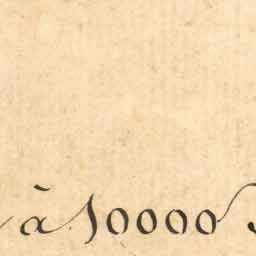 à 10000